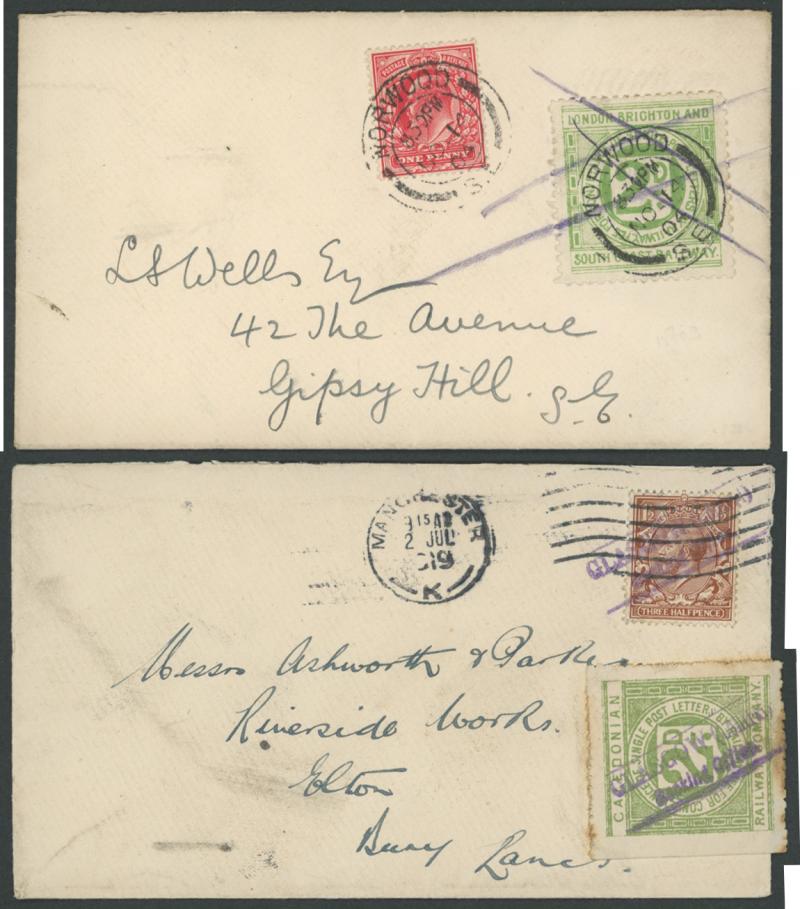 POSTAGE
ONE PENNY
NORWOOD
8.30PM
14
04
S.E
LONDON BRIGHTON AND
SOUTH COAST RAILWAY.
NORWOOD
8.30PM
NO 14
04
S.E
L S Wells Esq
42 The Avenue
Gipsy Hill. S.E.
MANCHESTER
9 15 AM
2 JUL
19
K
THREE HALFPENCE
Messrs Ashworth & Parker
Riverside Works.
Elton
Bury Lancs.
CALEDONIAN
SINGLE POST LETTER BY
RAILWAY COMPANY.
2D
Booking Office